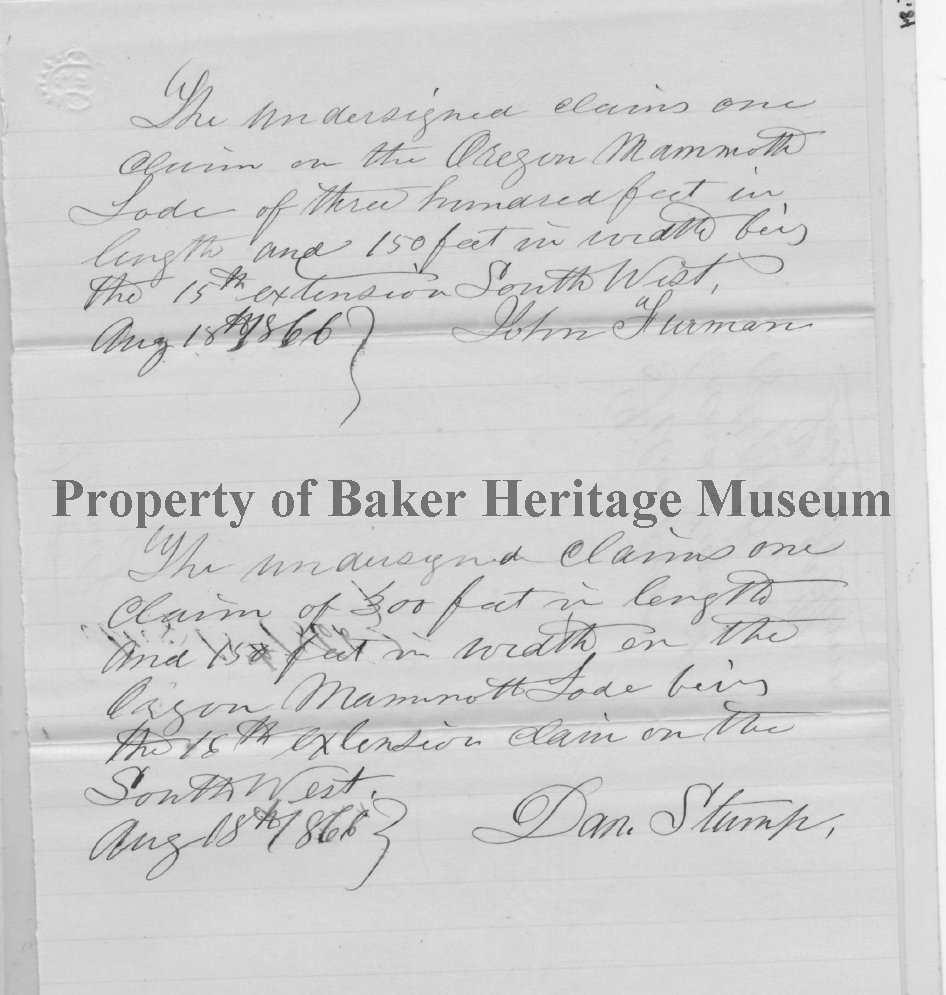 The undersigned claims one
claim on the Oregon Mammoth
Lode of three hundred feet in
length and 150 feet in width being
the 15th extension South West,
Aug 18th 1866 } John Furman
Property of Baker Heritage Museum
The undersigned claims one
claim of 300 feet in length
and 150 feet in width on the
Oregon Mammoth Lode being
the 16th extension claim on the
South West.
Aug 18th 1866 } Dan. Stump.